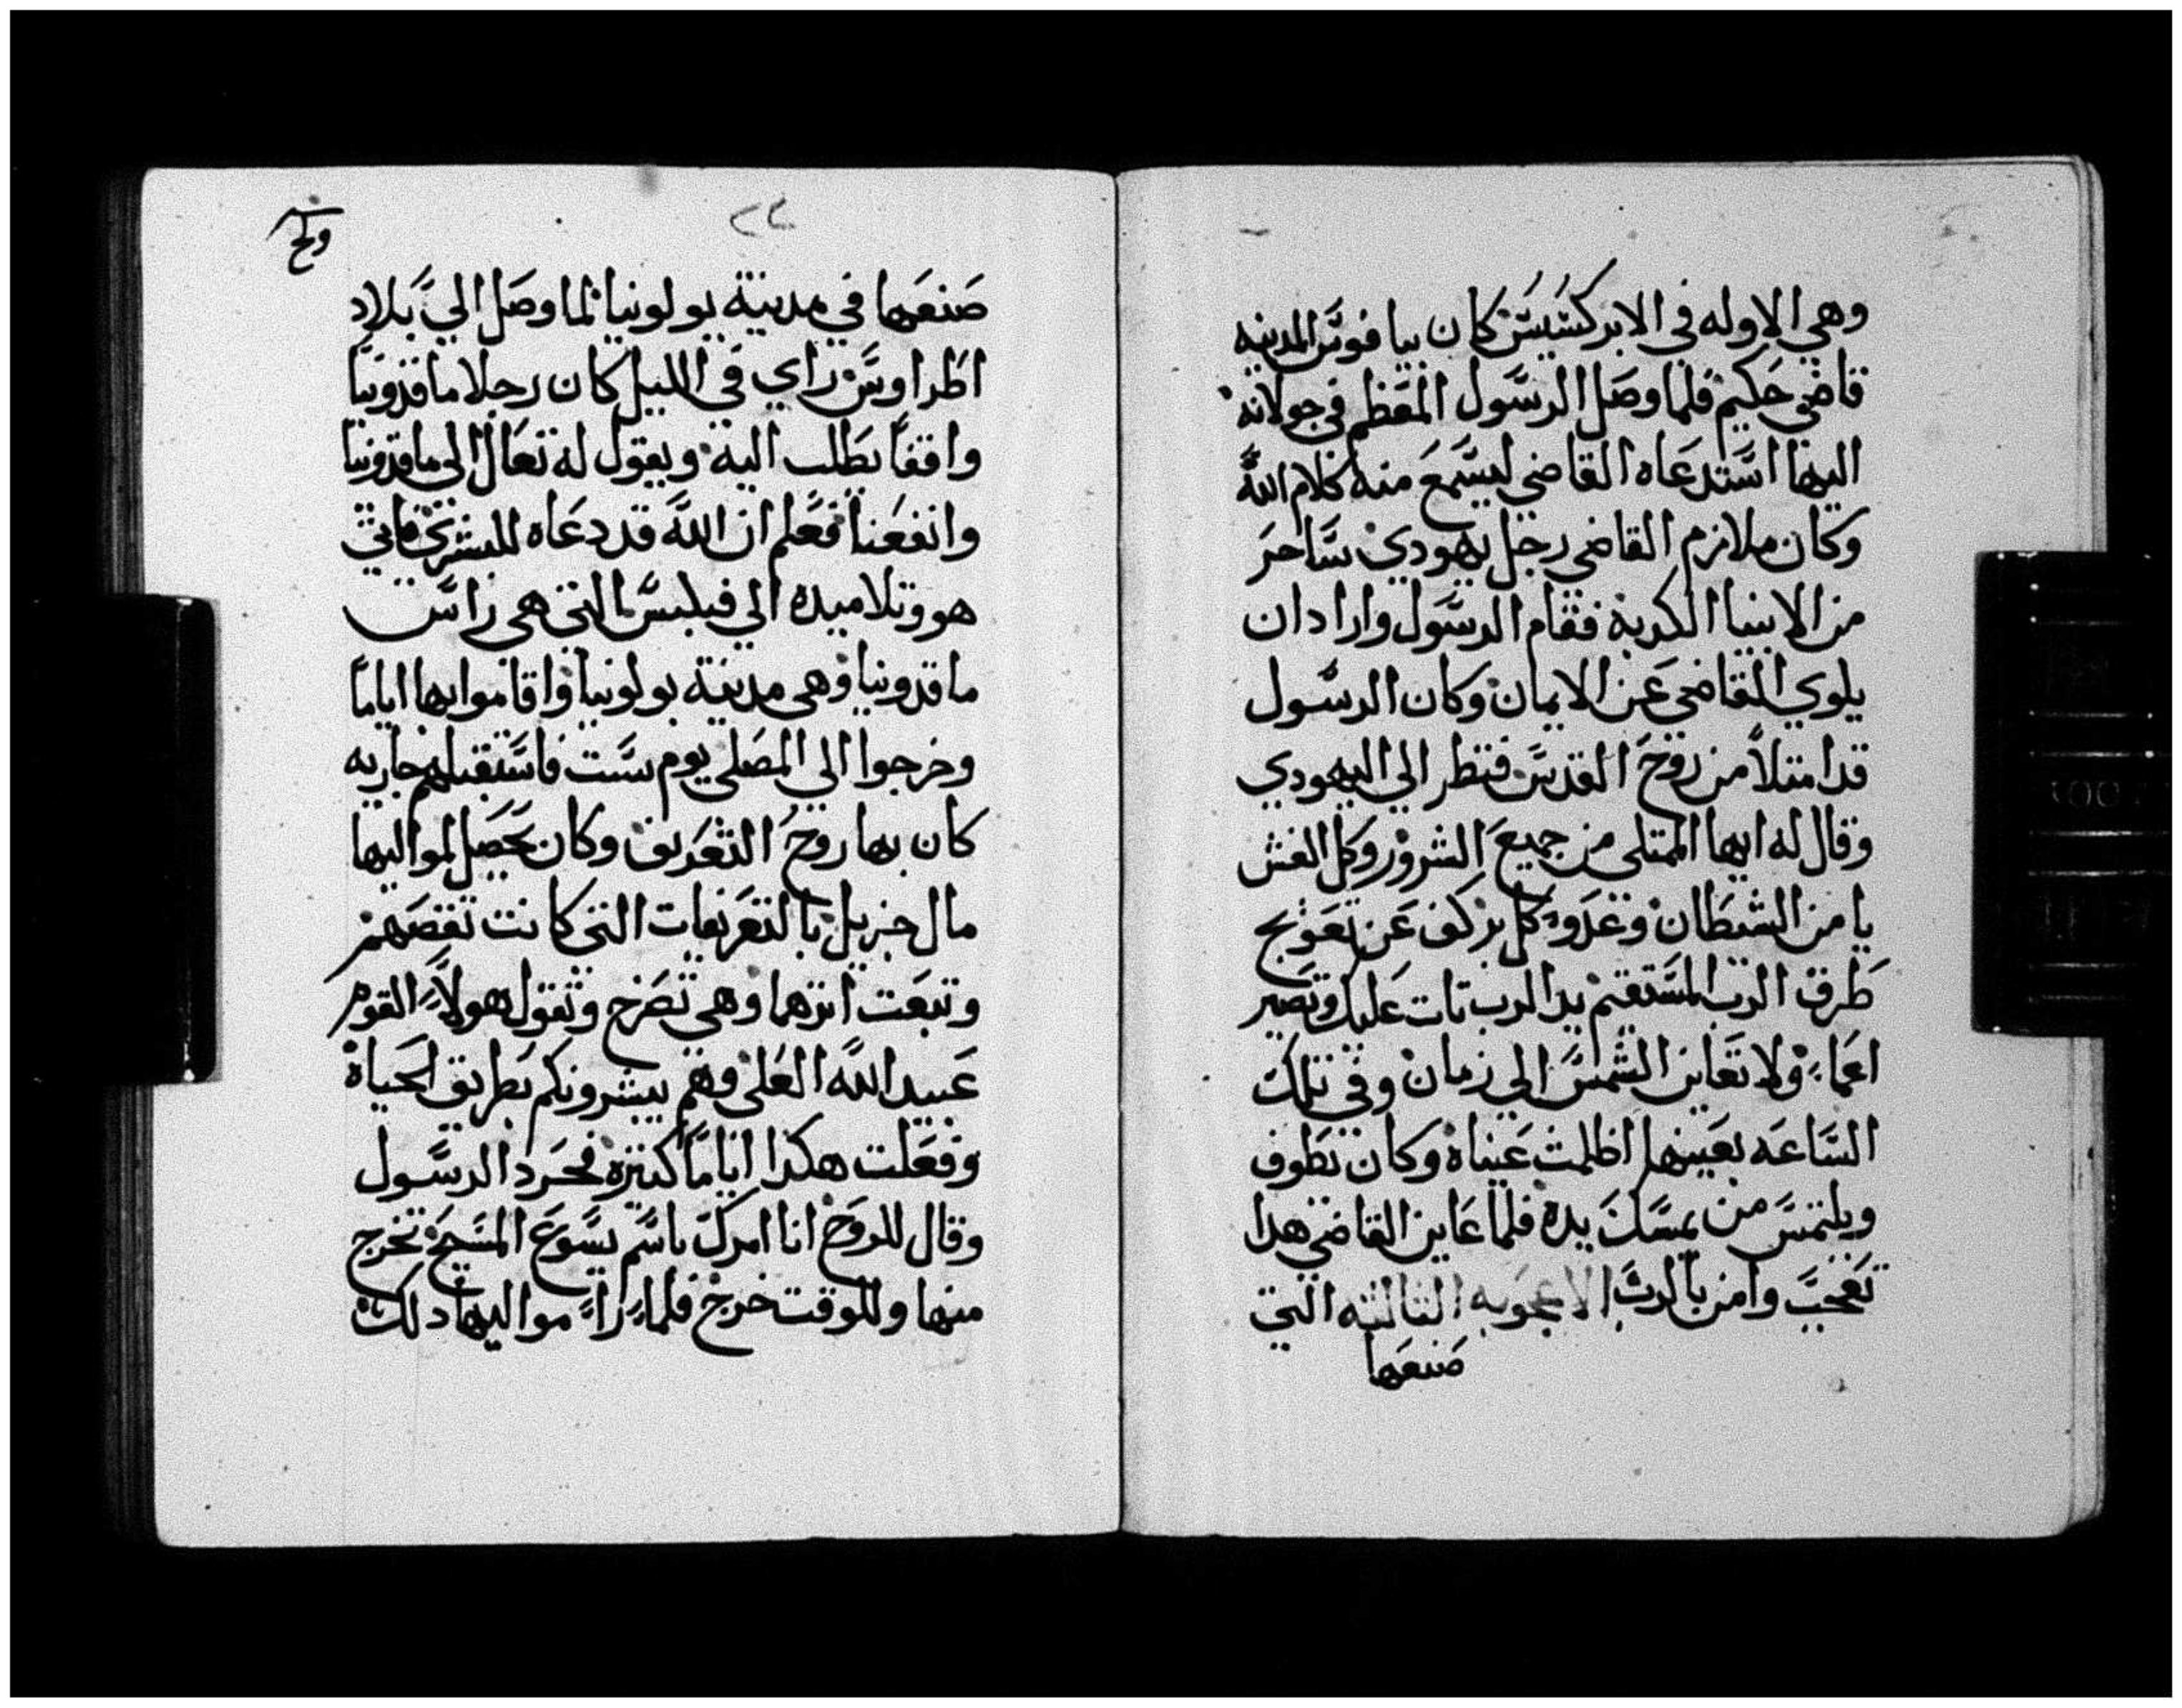 وهي الاوله في الابركسيس كان بيافوس المدينه
قاضي حكيم فلما وصل الرسول المعظم في جولانه
اليها استدعاه القاضي ليسمع منه كلام الله
وكان ملازم القاضي رجل يهودي ساحر
من الانبيا الكدبة فقام الرسول واراد ان
يلوي القاضي عن الايمان وكان الرسول
قد امتلا من روح القدس فنظر الي اليهودي
وقال له ايها الممتلي من جميع الشرور وكل الغش
يا من الشيطان وعدو كل بر كف عن تعويج
طرق الرب المستقيم يد الرب تات عليك وتصير
اعماء ولا تعاين الشمس الي زمان وفي تلك
الساعه بعينها اظلمت عيناه وكان يطوف
ويلتمس من يمسك يده فلما عاين القاضي هدا
تعجب وامن بالرب الاعجوبه الثالثه التي
صنعها
٢٢
صنعها في مدينة بولونيا لما وصل الي بلاد
اطراوس راي في الليل كان رجلا ماقدونيا
واقفا يطلب اليه ويقول له تعال الي ماقدونيا
وانفعنا فعلم ان الله قد دعاه للبشري فاتي
هو وتلاميده الي فيلبس التي هي راس
ماقدونيا وهي مدينة بولونيا واقاموا بها اياما
وخرجوا الي المصلي يوم سبت فاستقبلهم جاريه
كان بها روح التعريف وكان يحصل لمواليها
مال جزيل بالتعريفات التي كانت تفصهم
وتبعت اثرهما وهي تصرخ وتقول هولاء القوم
عبيد الله العلي وهم يبشرونكم بطريق الحياة
وفعلت هكدا اياما كثيره فحرد الرسول
وقال للروح انا امرك باسم يسوع المسيح تخرج
منها وللوقت خرج فلما راء مواليها دلك